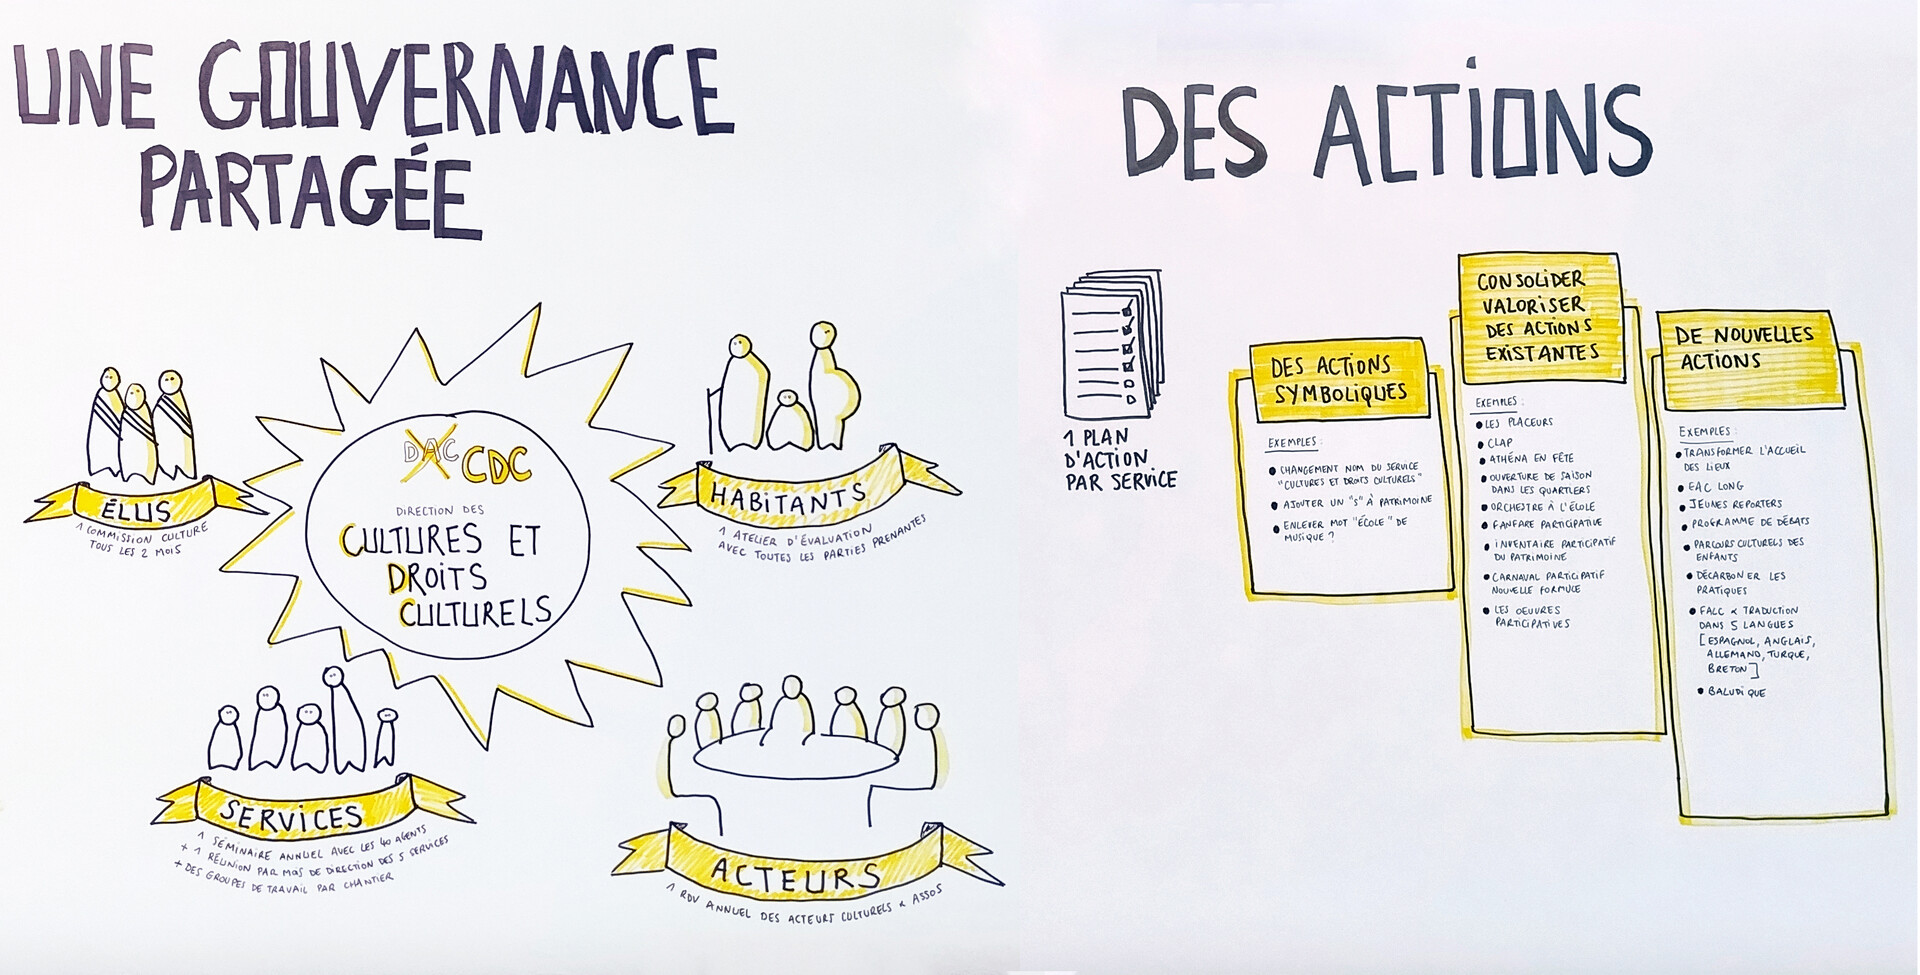 UNE GOUVERNANCE
PARTAGÉE
ÉLUS
1 COMMISSION CULTURE
TOUS LES 2 MOIS
DAC CDC
DIRECTION DES
CULTURES ET
DROITS
CULTURELS
HABITANTS
1 ATELIER D'ÉVALUATION
AVEC TOUTES LES PARTIES PRENANTES
SERVICES
1 SEMINAIRE ANNUEL AVEC LES 40 AGENTS
+ 1 RÉUNION PAR MOIS DE DIRECTION DES 5 SERVICES
+ DES GROUPES DE TRAVAIL PAR CHANTIER
ACTEURS
1 RDV ANNUEL DES ACTEURS CULTURELS & ASSOS
DES ACTIONS
1 PLAN
D'ACTION
PAR SERVICE
DES ACTIONS
SYMBOLIQUES
EXEMPLES :
• CHANGEMENT NOM DU SERVICE
"CULTURES ET DROITS CULTURELS"
• AJOUTER UN "S" À PATRIMOINE
• ENLEVER MOT "ÉCOLE" DE
MUSIQUE ?
CONSOLIDER
VALORISER
DES ACTIONS
EXISTANTES
EXEMPLES :
• LES PLACEURS
• CLAP
• ATHÉNA EN FÊTE
• OUVERTURE DE SAISON
DANS LES QUARTIERS
• ORCHESTRE À L'ÉCOLE
• FANFARE PARTICIPATIVE
• INVENTAIRE PARTICIPATIF
DU PATRIMOINE
• CARNAVAL PARTICIPATIF
NOUVELLE FORMULE
• LES OEUVRES
PARTICIPATIVES
DE NOUVELLES
ACTIONS
EXEMPLES :
• TRANSFORMER L'ACCUEIL
DES LIEUX
• EAC LONG
• JEUNES REPORTERS
• PROGRAMME DE DÉBATS
• PARCOURS CULTURELS DES
ENFANTS
• DÉCARBONER LES
PRATIQUES
• FALC & TRADUCTION
DANS 5 LANGUES
[ESPAGNOL, ANGLAIS,
ALLEMAND, TURQUE,
BRETON]
• BALUDIQUE